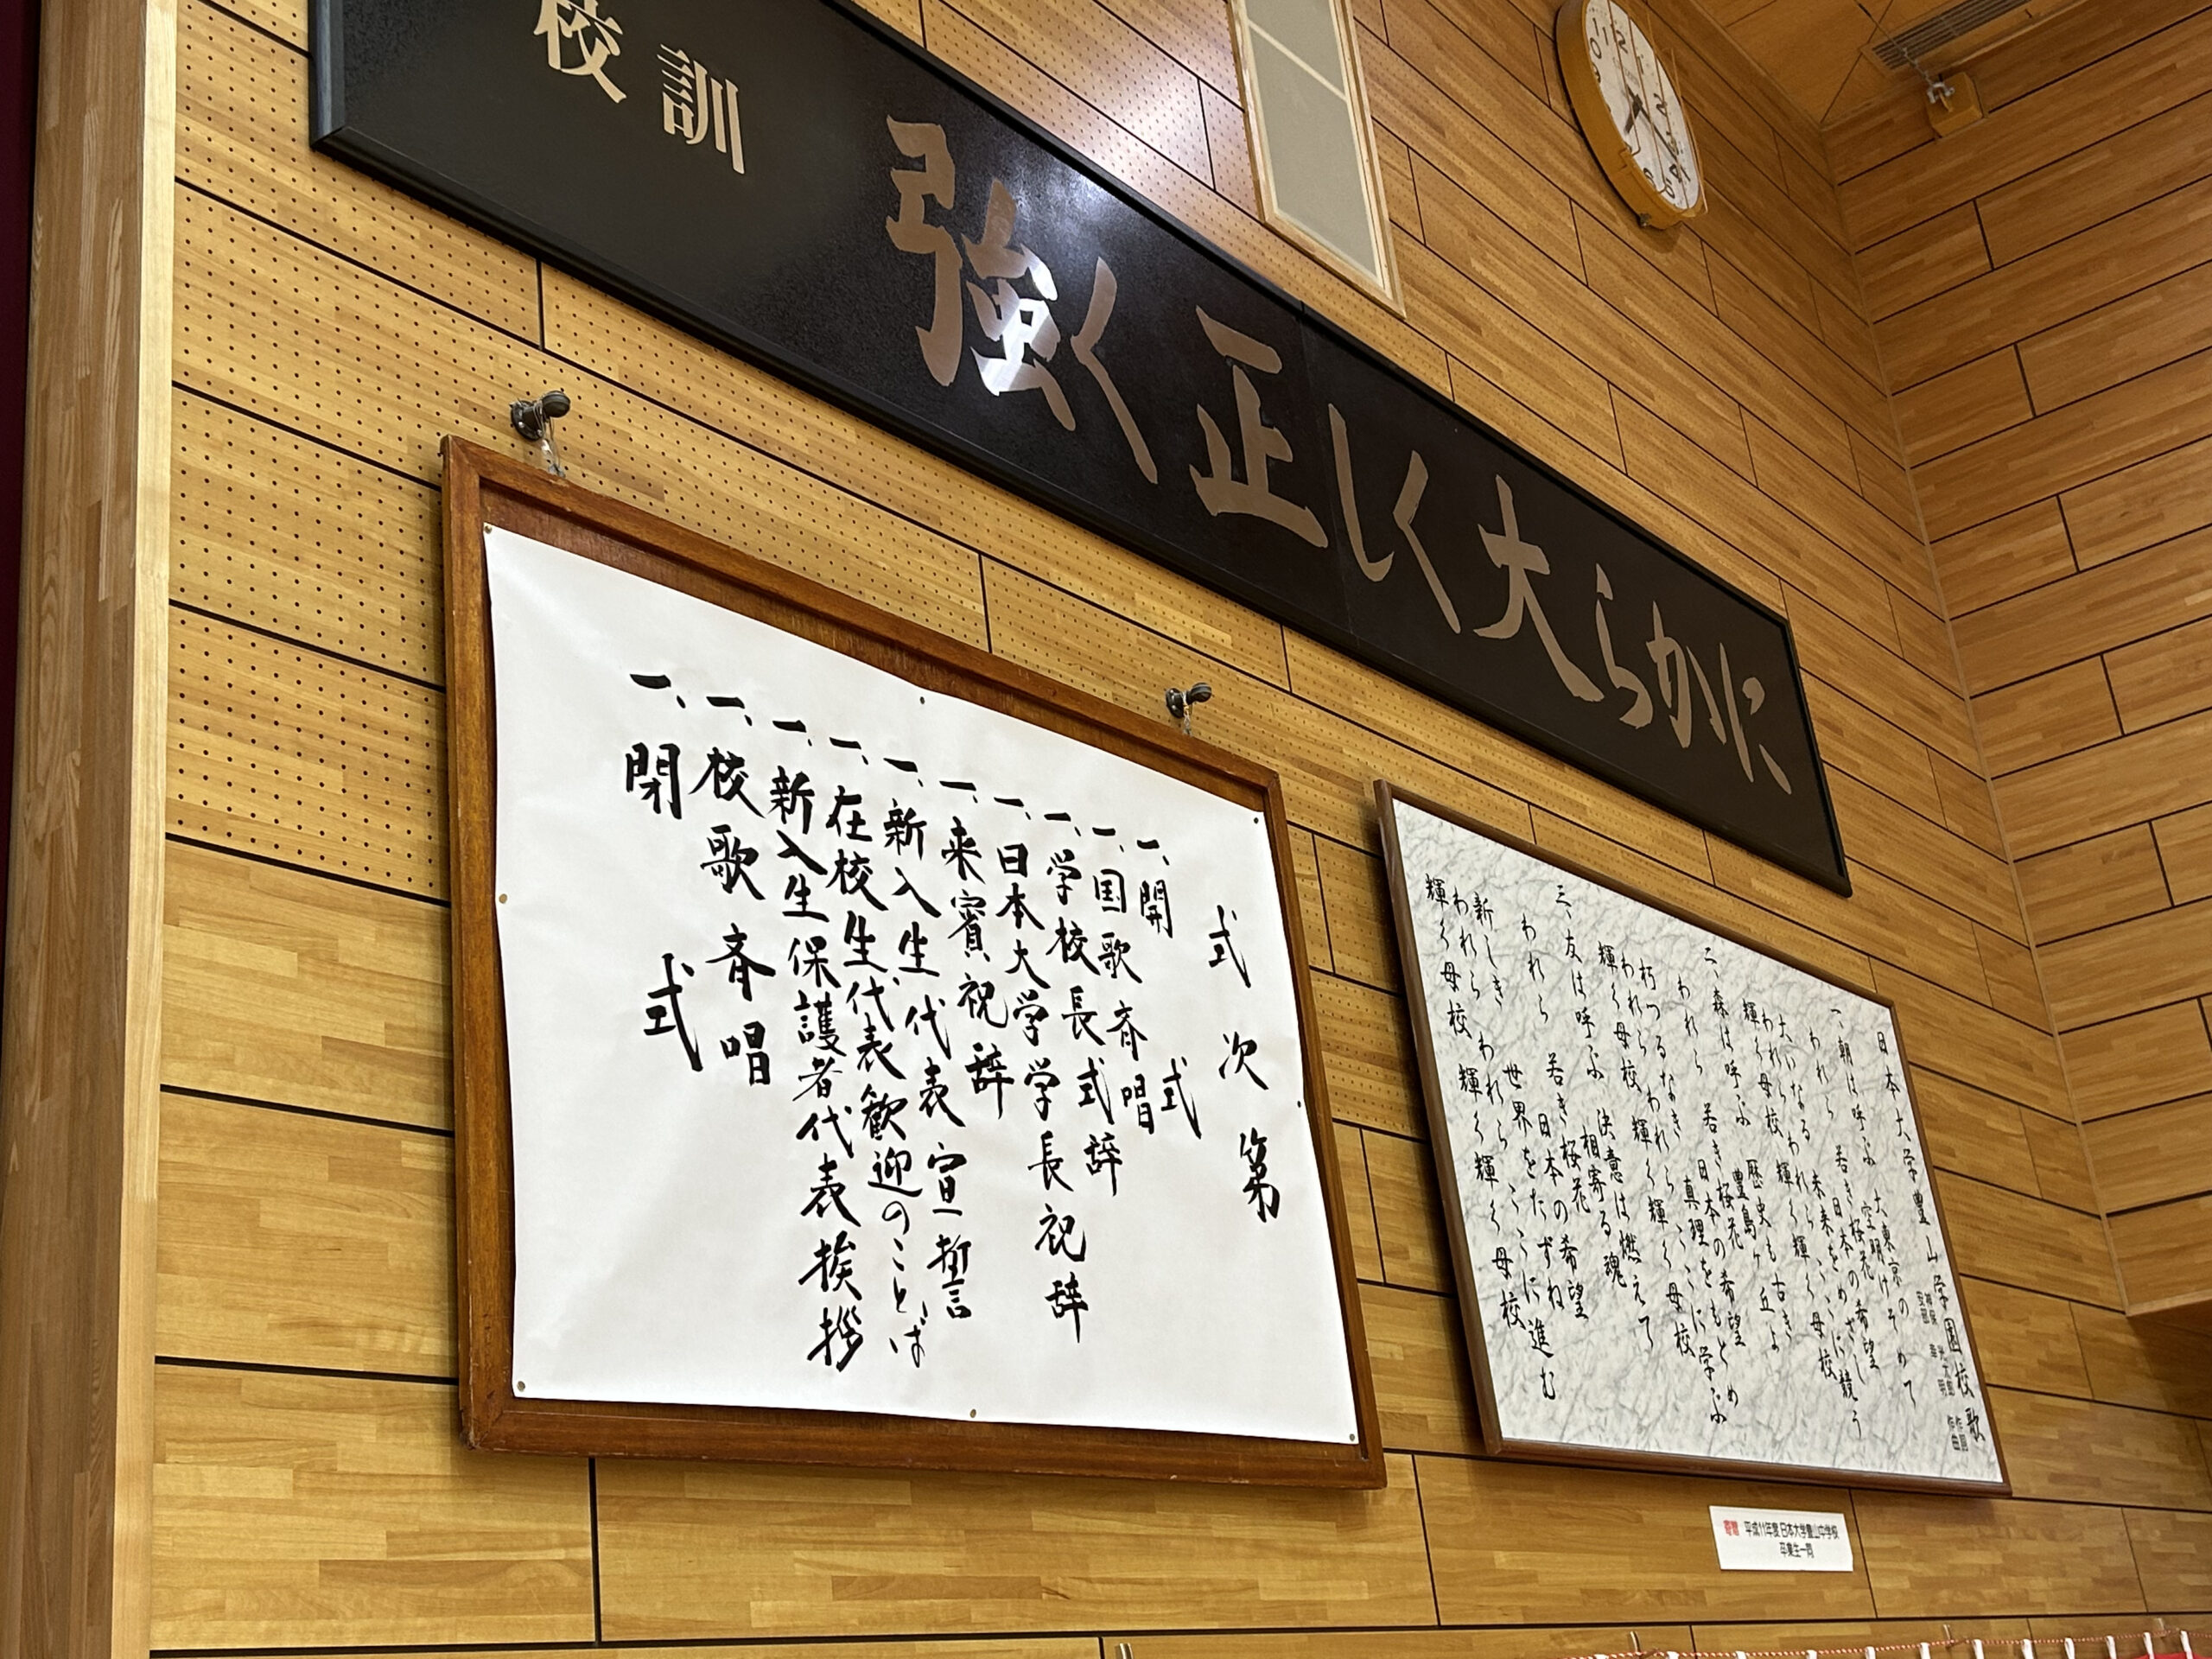 校訓
強く正しく大らかに
式次第
一、開式
一、国歌斉唱
一、学校長式辞
一、日本大学学長祝辞
一、来賓祝辞
一、新入生代表宣誓
一、在校生代表歓迎のことば
一、新入生保護者代表挨拶
一、校歌斉唱
一、閉式
日本大学豊山学園校歌
作詞
作曲
一、朝は呼ぶ 大東京の 空明けそめて
われら 若き桜花
日本の希望
大いなる われら
われら 輝く
輝く母校
二、森は呼ぶ 豊島ヶ丘よ
歴史も古き
われら 若き桜花
日本の希望
朽つるなき 真理をもとめ
われら われら ここに学ぶ
輝く母校 輝く輝く母校
三、友は呼ぶ 決意は燃えて
相寄る魂
われら 若き桜花
日本の希望
新しき 世界をたずね
われら われら ここに進む
輝く母校 輝く輝く母校
寄贈 平成11年度 日本大学豊山中学校
卒業生一同